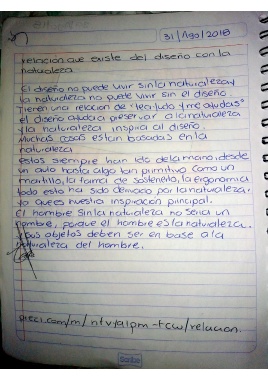 31/Ago/2018
relacion que existe del diseño con la
naturaleza
El diseño no puede vivir sin la naturaleza y
la naturaleza no puede vivir sin el diseño.
Tienen una relacion de "te ayudo y me ayudas"
el diseño ayuda a preservar a la naturaleza
y la naturaleza inspira al diseño.
Muchas cosas estan basadas en la
naturaleza
estos siempre han ido de la mano, desde
un auto hasta algo tan primitivo como un
martillo, la forma de sostenerlo, la ergonomia
todo esto ha sido derivado por la naturaleza,
ya que es nuestra inspiración principal.
El hombre sin la naturaleza no seria un
hombre, porque el hombre es la naturaleza.
objetos deben ser en base a la
naturaleza del hombre.
prezi.com/m/ntvyalpm-tcw/relacion.
Scribe